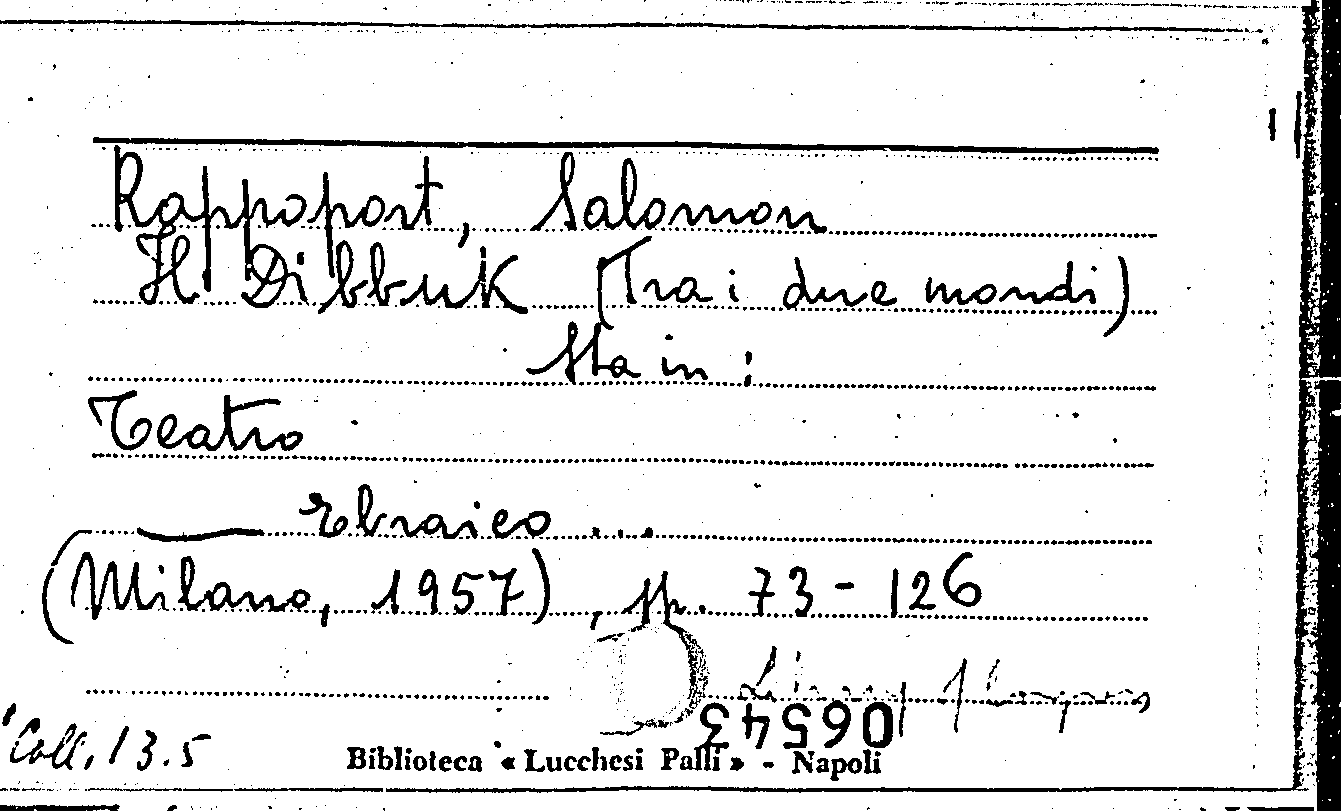 Rappoport, Salomon
Il Dibbuk (Tra i due mondi)
Sta in:
Teatro
Ebraico ...
(Milano, 1957), pp. 73-126
065543
Coll. 13.5
Biblioteca « Lucchesi Palli » - Napoli